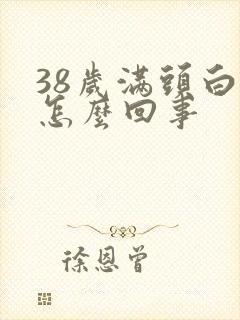 38歲滿頭白
怎麼回事
徐恩曾